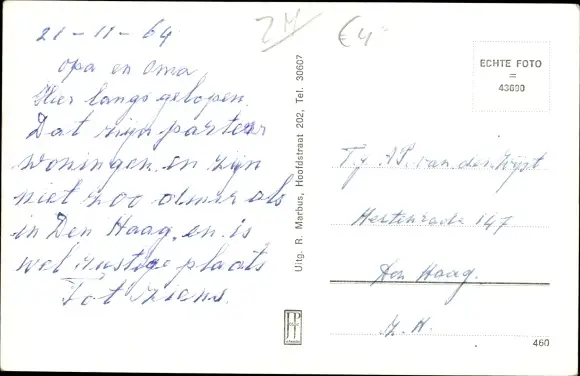 21-11-64
ZH
€4
opa en oma,
Hier langs gelopen.
Dat zijn parterr
woningen en zijn
niet zoo als
in Den Haag, en is
wel rustige plaats
Tot ziens.
Uitg. R. Marhus, Hoofdstraat 202, Tel. 30607
ECHTE FOTO
=
43690
v.an der Wijst
Hertenrade 147
Den Haag.
Z.H.
460